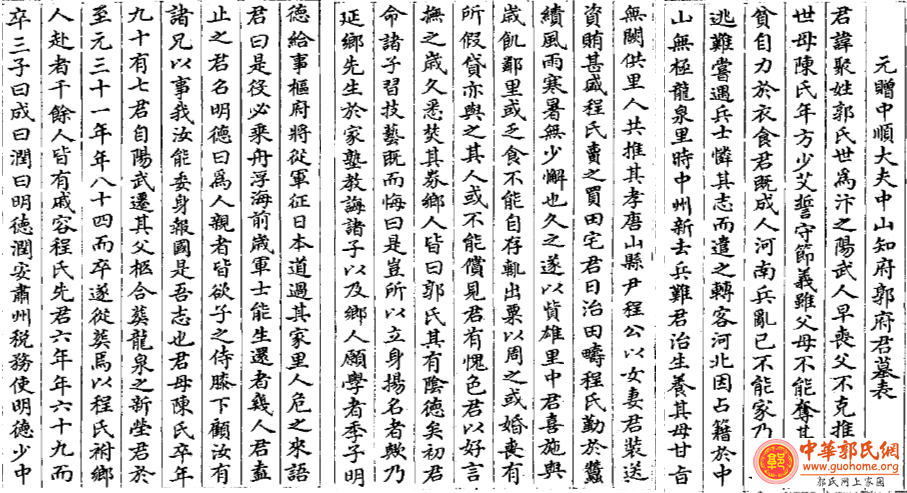 元贈中順大夫中山知府郭府君墓表
君諱聚姓郭氏世爲汴之陽武人早喪父不克推
世母陳氏年方少艾誓守節義雖父母不能奪其
貧自力於衣食君旣成人河南兵亂已不能家乃
逃難嘗遇兵士憐其志而遣之轉客河北因占籍於中
山無極龍泉里時中州新去兵難君治生養其母甘旨
無闕供里人共推其孝唐山縣尹程公以女妻君裝送
資賄甚盛程氏賣之買田宅君日治田疇程氏勤於蠶
績風雨寒暑無少懈也久之遂以貲雄里中君喜施與
歲飢鄰里或乏食不能自存輒出粟以周之或婚喪有
所假貸亦與之其人或不能償見君有愧色君以好言
撫之歲久悉焚其券鄉人皆曰郭氏其有陰德矣初君
命諸子習技藝旣而悔曰是豈所以立身揚名者歟乃
延鄉先生於家塾教誨諸子以及鄉人願學者季子明
德給事樞府將從軍征日本道過其家里人危之來語
君曰是役必乘舟浮海前歲軍士能生還者幾人君盍
止之君名明德曰爲人親者皆欲子之侍膝下顧汝有
諸兄以事我汝能委身報國是吾志也君母陳氏卒年
九十有七君自陽武遷其父柩合葬龍泉之新塋君於
至元三十一年年八十四而卒遂從葬焉以程氏祔鄉
人赴者千餘人皆有戚容程氏先君六年年六十九而
卒三子曰成曰潤曰明德潤安肅州稅務使明德少中
中華郭氏網
www.guohome.org
郭氏网上家园